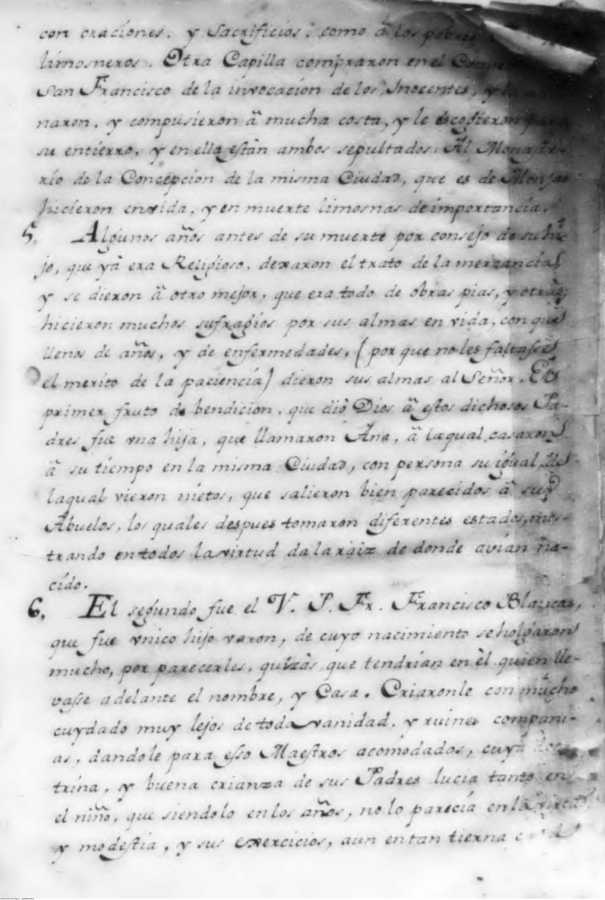 con oraciones, y Sacrificios, como â los pobres
limosneros. Otra Capilla compraron en el
San Francisco de la invocacion de los Inocentes, y la
naron, y compusieron â mucha costa, y le escogieron para
su entierro, y en ella estàn ambos sepultados. Al Monaste-
rio de la Concepcion de la misma Ciudad, que es de Monjas
hicieron en vida, y en muerte limosnas de importancia.
5. Algunos años antes de su muerte por consejo de su hi-
jo, que yà era Religioso, dexaron el trato de la mercancia,
y se dieron â otro mejor, que era todo de obras pias, y
hicieron muchos sufragios por sus almas en vida, con que
llenos de años, y de enfermedades, (por que no les faltasse
el merito de la paciencia) dieron sus almas al Señor. El
primer fruto de bendicion, que diò Dios â estos dichosos Pa-
dres fue vna hija, que llamaron Ana, â la qual casaron
â su tiempo en la misma Ciudad, con persona su igual, de
la qual vieron nietos, que salieron bien parecidos â sus
Abuelos, los quales despues tomaron diferentes estados, mos-
trando en todos la virtud de la raiz de donde avian na-
cido.
6. El segundo fue el V. P. Fr. Francisco
que fue vnico hijo varon, de cuyo nacimiento se holgaron
mucho, por parecerles, quizàs que tendrian en èl quien lle-
vasse adelante el nombre, y Casa. Criaronle con mucho
cuydado muy lejos de toda vanidad, y ruines compañi-
as, dandole para esso Maestros acomodados, cuya doc-
trina, y buena crianza de sus Padres lucia tanto en
el niño, que siendolo en los años, no lo parecia en la virtud
y modestia, y sus exercicios, aun en tan tierna edad